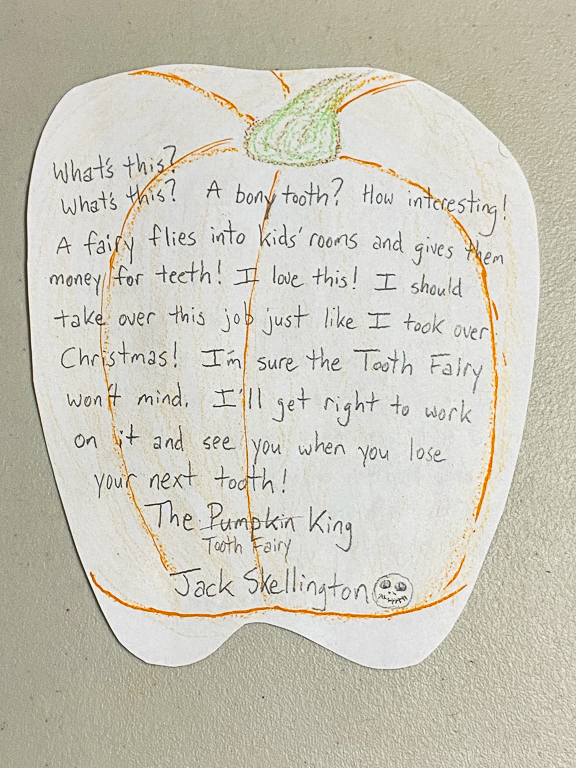 What's this?
What's this? A bony tooth? How interesting!
A fairy flies into kids' rooms and gives them
money for teeth! I love this! I should
take over this job just like I took over
Christmas! I'm sure the Tooth Fairy
won't mind. I'll get right to work
on it and see you when you lose
your next tooth!
The Pumpkin King
Tooth Fairy
Jack Skellington